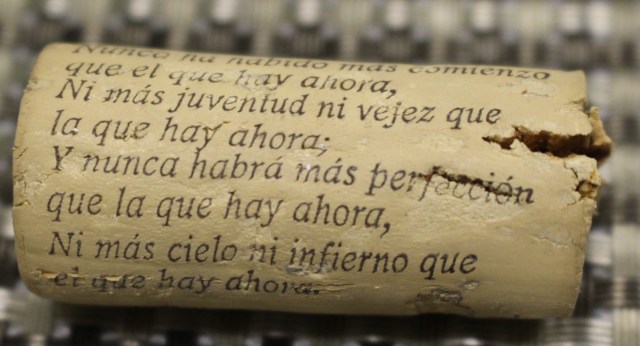 Nunca ha habido más comienzo
que el que hay ahora,
Ni más juventud ni vejez que
la que hay ahora;
Y nunca habrá más perfección
que la que hay ahora,
Ni más cielo ni infierno que
el que hay ahora.